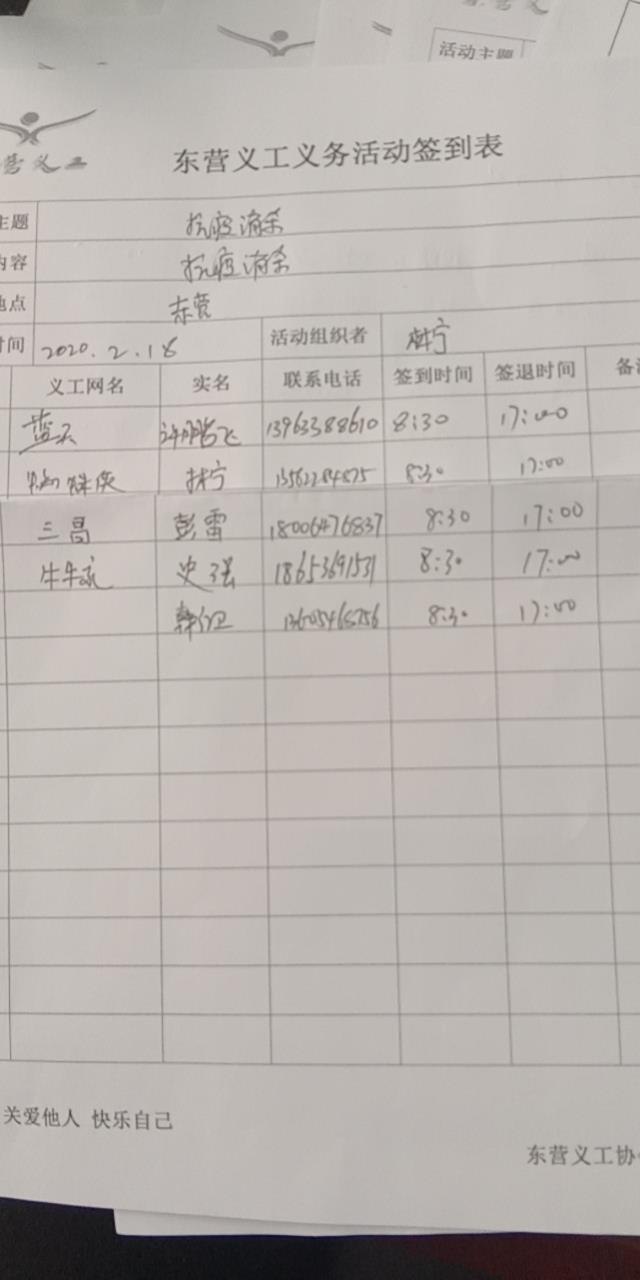 活动主题
营义工
东营义工义务活动签到表
主题 抗疫消杀
内容 抗疫消杀
地点 东营
时间 2020.2.18 活动组织者 林宁
义工网名 实名 联系电话 签到时间 签退时间 备注
蓝天 许鹏飞 13963388610 8:30 17:00
林宁 13562284875 8:30 17:00
三昌 彭雷 18006476837 8:30 17:00
牛牛 史强 18653691531 8:30 17:00
8:30 17:00
关爱他人 快乐自己
东营义工协